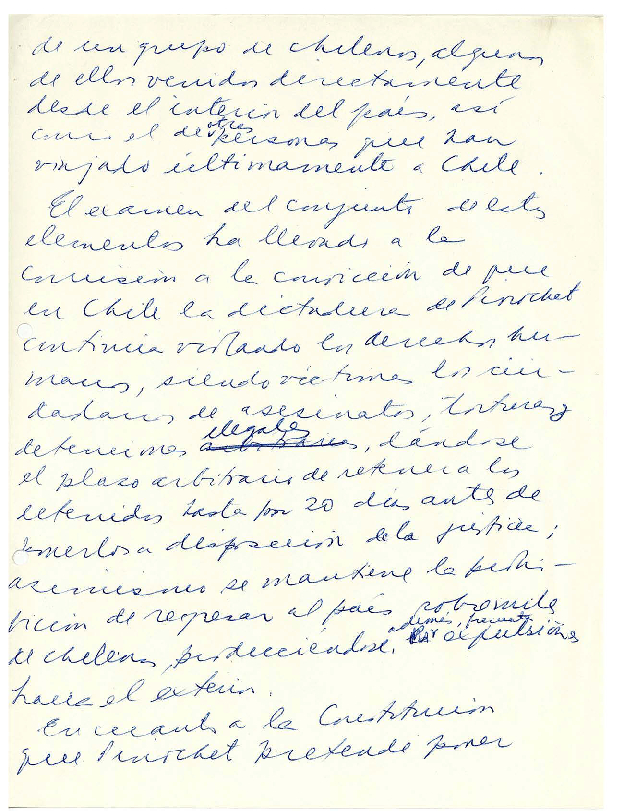 de un grupo de chilenos, algunos
de ellos venidos directamente
desde el interior del país, así
como el de otras personas que han
viajado últimamente a Chile.
El examen del conjunto de estos
elementos ha llevado a la
Comisión a la convicción de que
en Chile la dictadura de Pinochet
continúa violando los derechos hu-
manos, siendo víctimas los ciu-
dadanos de asesinatos, torturas y
detenciones ilegales, dándose
el plazo arbitrario de retener a los
detenidos hasta por 20 días antes de
ponerlos a disposición de la justicia;
asimismo se mantiene la prohi-
bición de regresar al país sobre miles
de chilenos, produciéndose, además, frecuentes expulsiones
hacia el exterior.
En cuanto a la Constitución
que Pinochet pretende poner